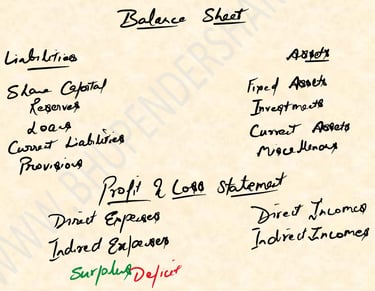 Balance Sheet
Liabilities
Share Capital
Reserves
Loans
Current Liabilities
Provisions
Assets
Fixed Assets
Investments
Current Assets
Miscellenous
Profit & Loss Statement
Direct Expenses
Indirect Expenses
Direct Incomes
Indirect Incomes
Surplus Deficit